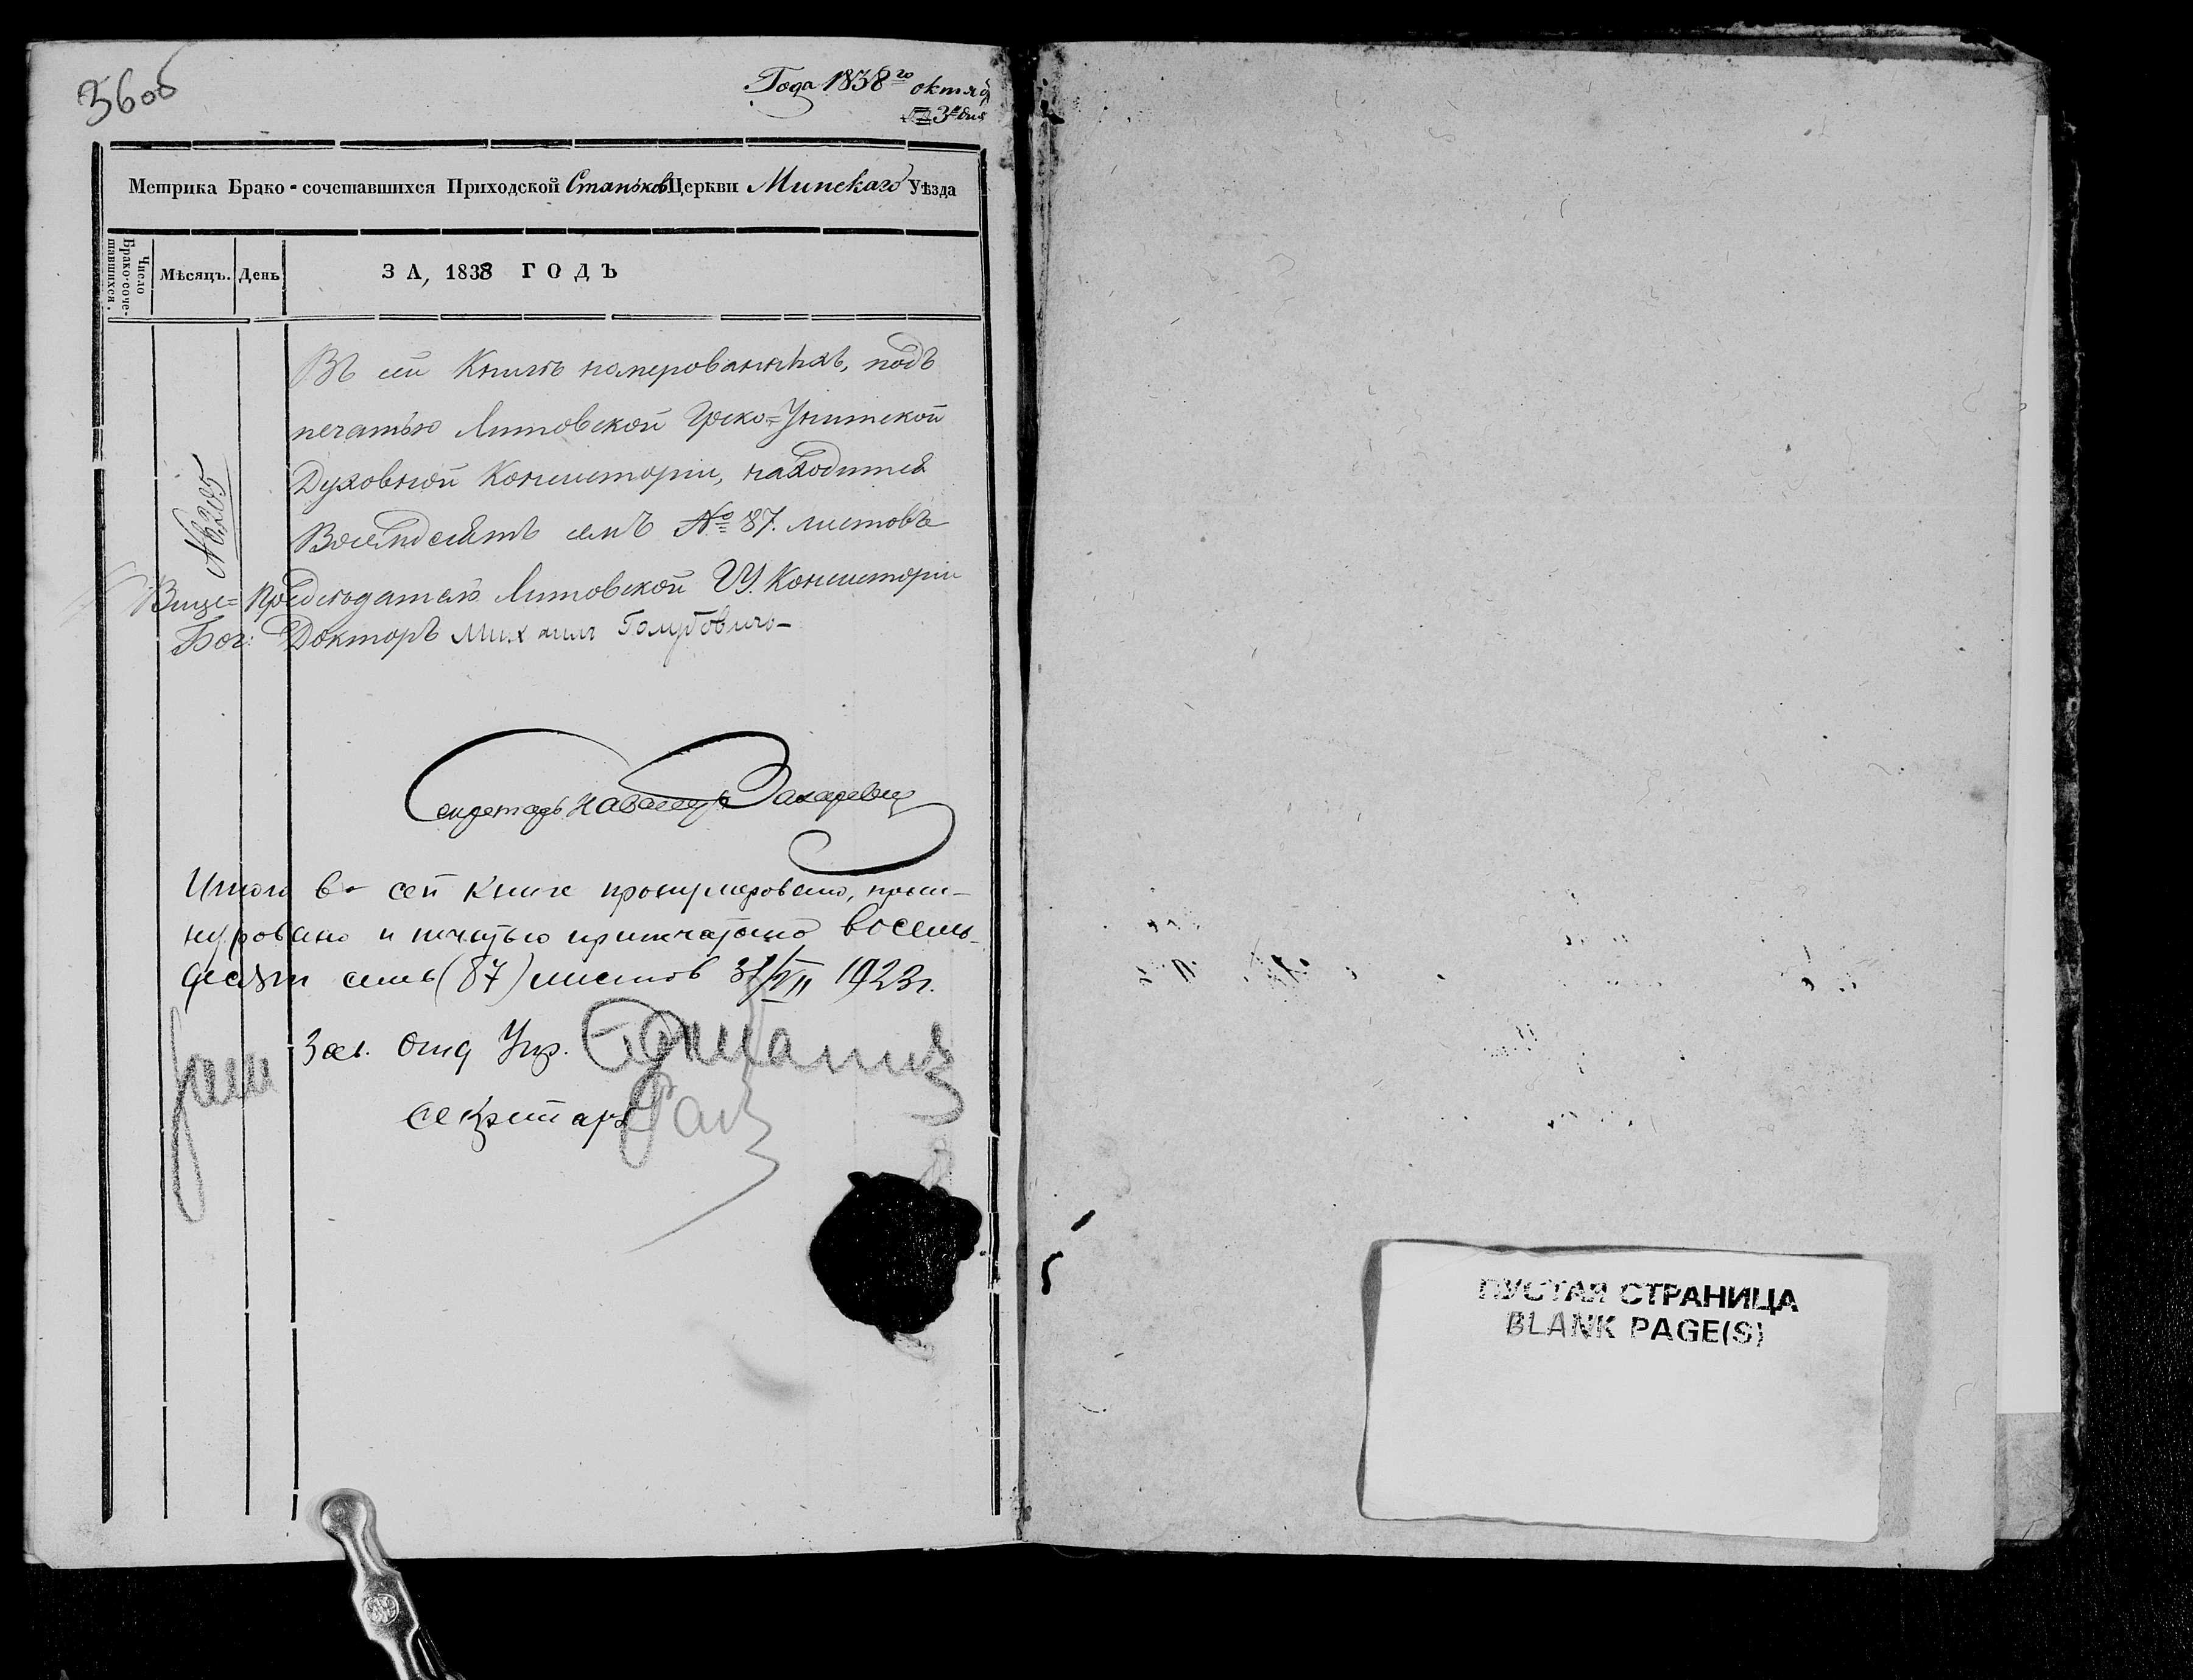 360б
Года 1838го октяб
3го дня
Метрика Брако-сочетавшихся Приходской Станьков Церкви Минскаго Уѣзда
Число Брако-соче-тавшихся.
Мѣсяцъ.
День
ЗА, 1838 ГОДЪ
Въ сей Книгѣ номерованныхъ, подъ
печатью Литовской Греко=Унитской
Духовной Консисторіи, находится
Восемдесятъ семъ №87. листовъ
№6205
Вице=Предсѣдатель Литовской ГУ. Консисторіи
Бог: Докторъ Михаилъ Голубовичъ
Секретарь
Итого в сей книге пронумеровано, прош-
нуровано и печатью припечатано восемь-
десят семь (87) листов 31/VII 1923г.
Зав. Отд Упр.
Секретарь
ПУСТАЯ СТРАНИЦА
BLANK PAGE(S)